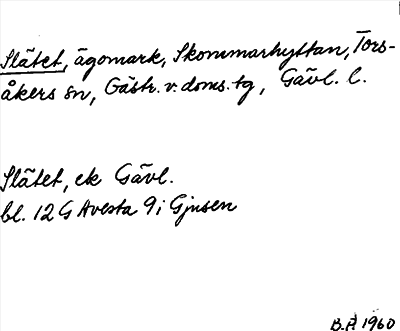 Slätet, ägomark, Skommarhyttan, Tors-
åkers sn, Gästr. v. doms. tg, Gävl. l.
Slätet, ek Gävl.
bl. 12 G Avesta 9i Gjusen
B.Å 1960